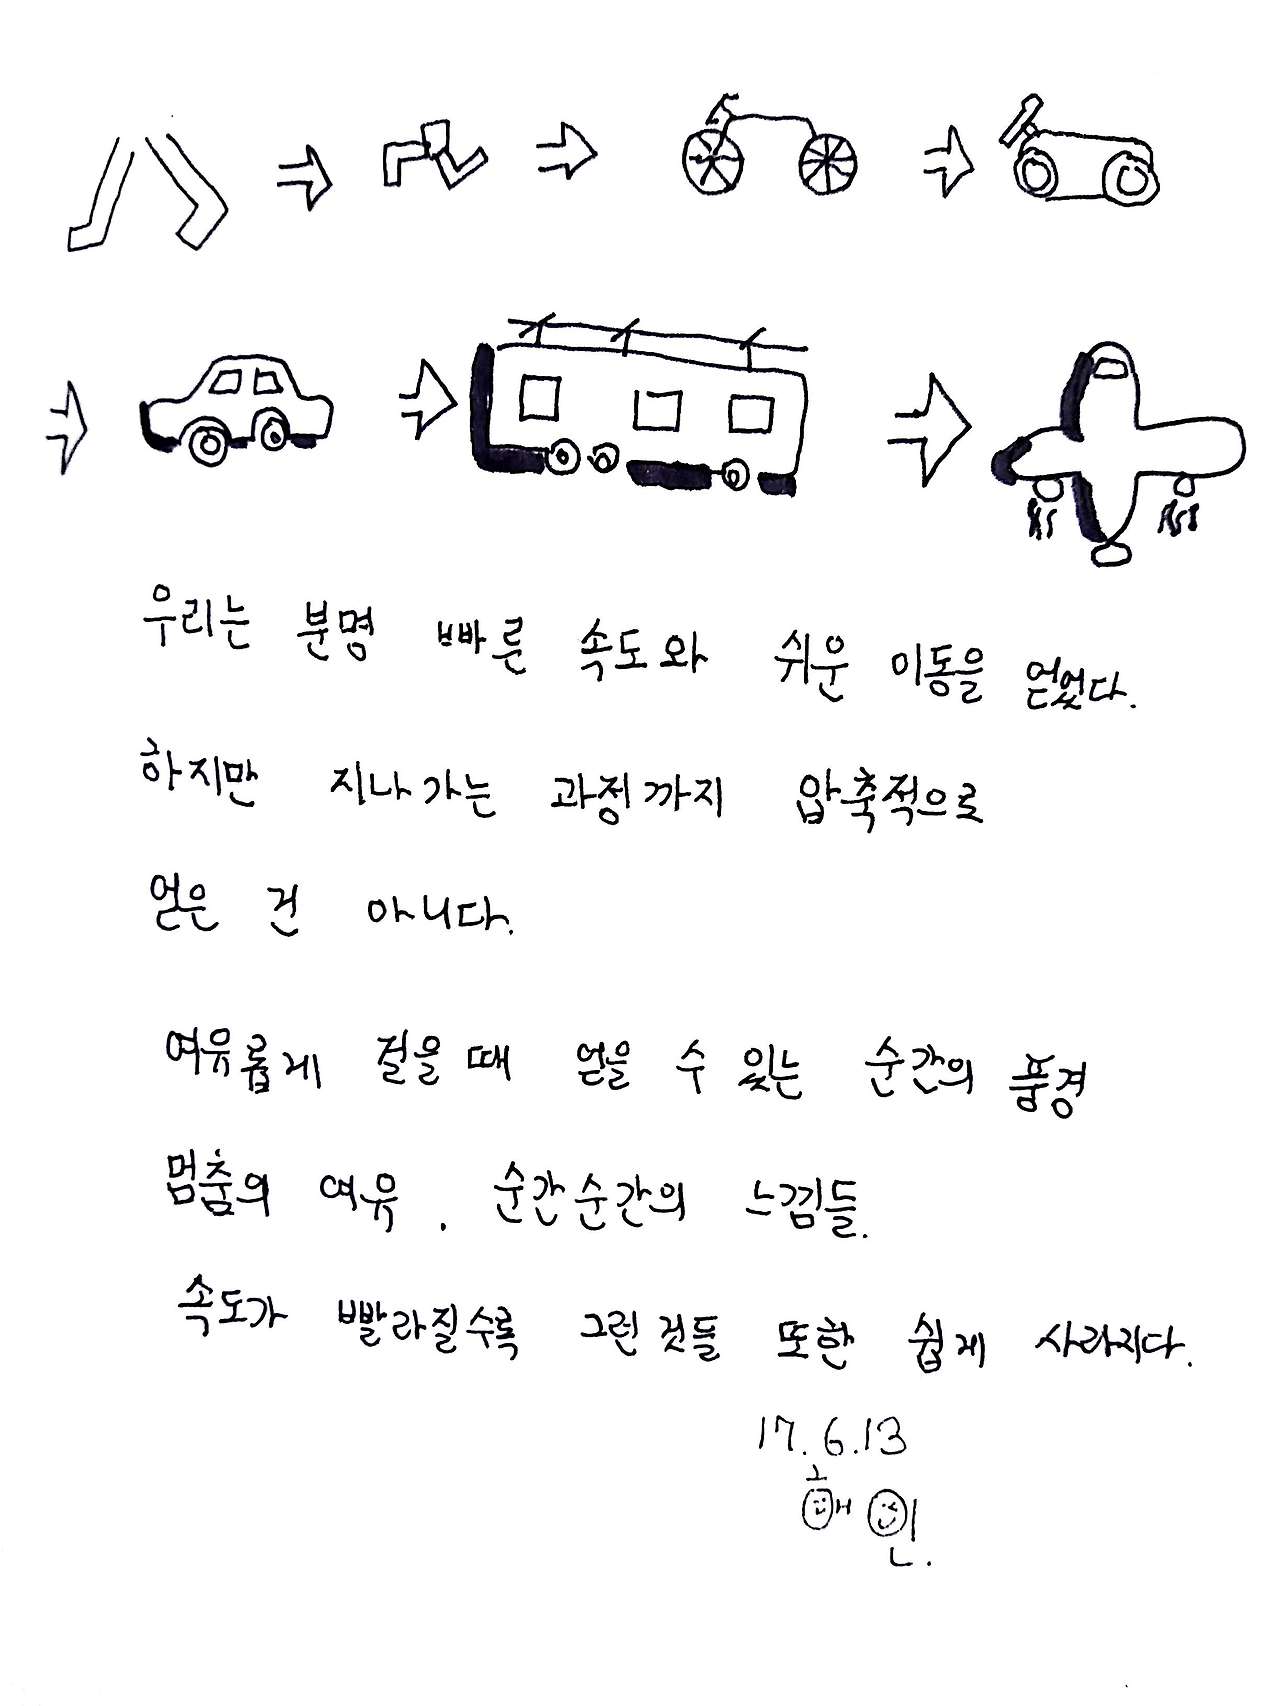 우리는 분명 빠른 속도와 쉬운 이동을 얻었다.
하지만 지나가는 과정까지 압축적으로
얻은 건 아니다.
여유롭게 걸을 때 얻을 수 있는 순간의 풍경
멈춤의 여유. 순간순간의 느낌들.
속도가 빨라질수록 그런것들 또한 쉽게 사라지다.
17.6.13
해인.